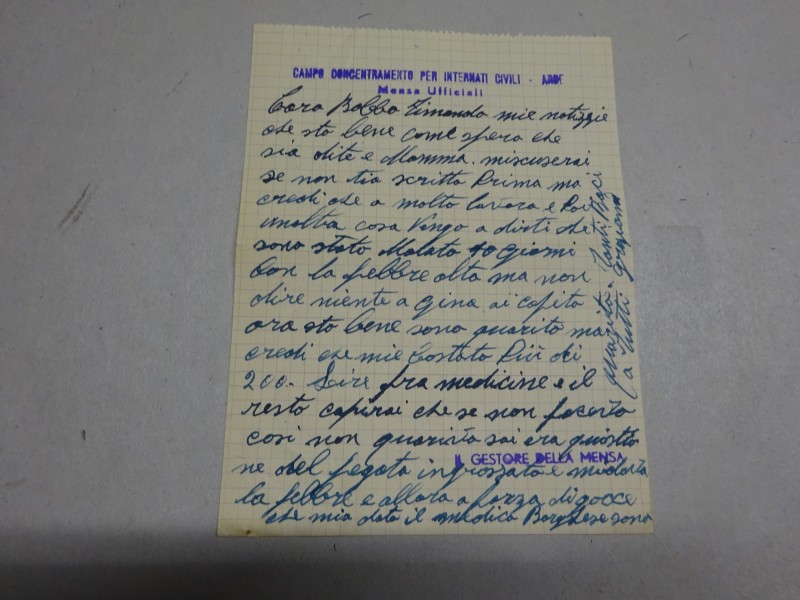 CAMPO CONCENTRAMENTO PER INTERNATI CIVILI - ARBE
Mensa Ufficiali
Caro Babbo timando mie notizzie
che sto bene come spero che
sia dite e Mamma. miscuserai
se non tio scritto Prima ma
credi che a molto lavoro e Poi
unaltra cosa Vengo a dirti che
sono stato Malato 10 giorni
Con la febbre alta ma non
dire niente a Gina ai capito
ora sto bene sono guarito ma
credi che mie Costato Più di
200. Lire fra medicine e il
resto capirai che se non facevo
così non guarivo sai era questio
IL GESTORE DELLA MENSA
ne del fegato ingrossato e mi dava
la febbre e allora a forza di gocce
che mia dato il medico Borghese sono
guarito. Tanti Baci
a tutti Graziano